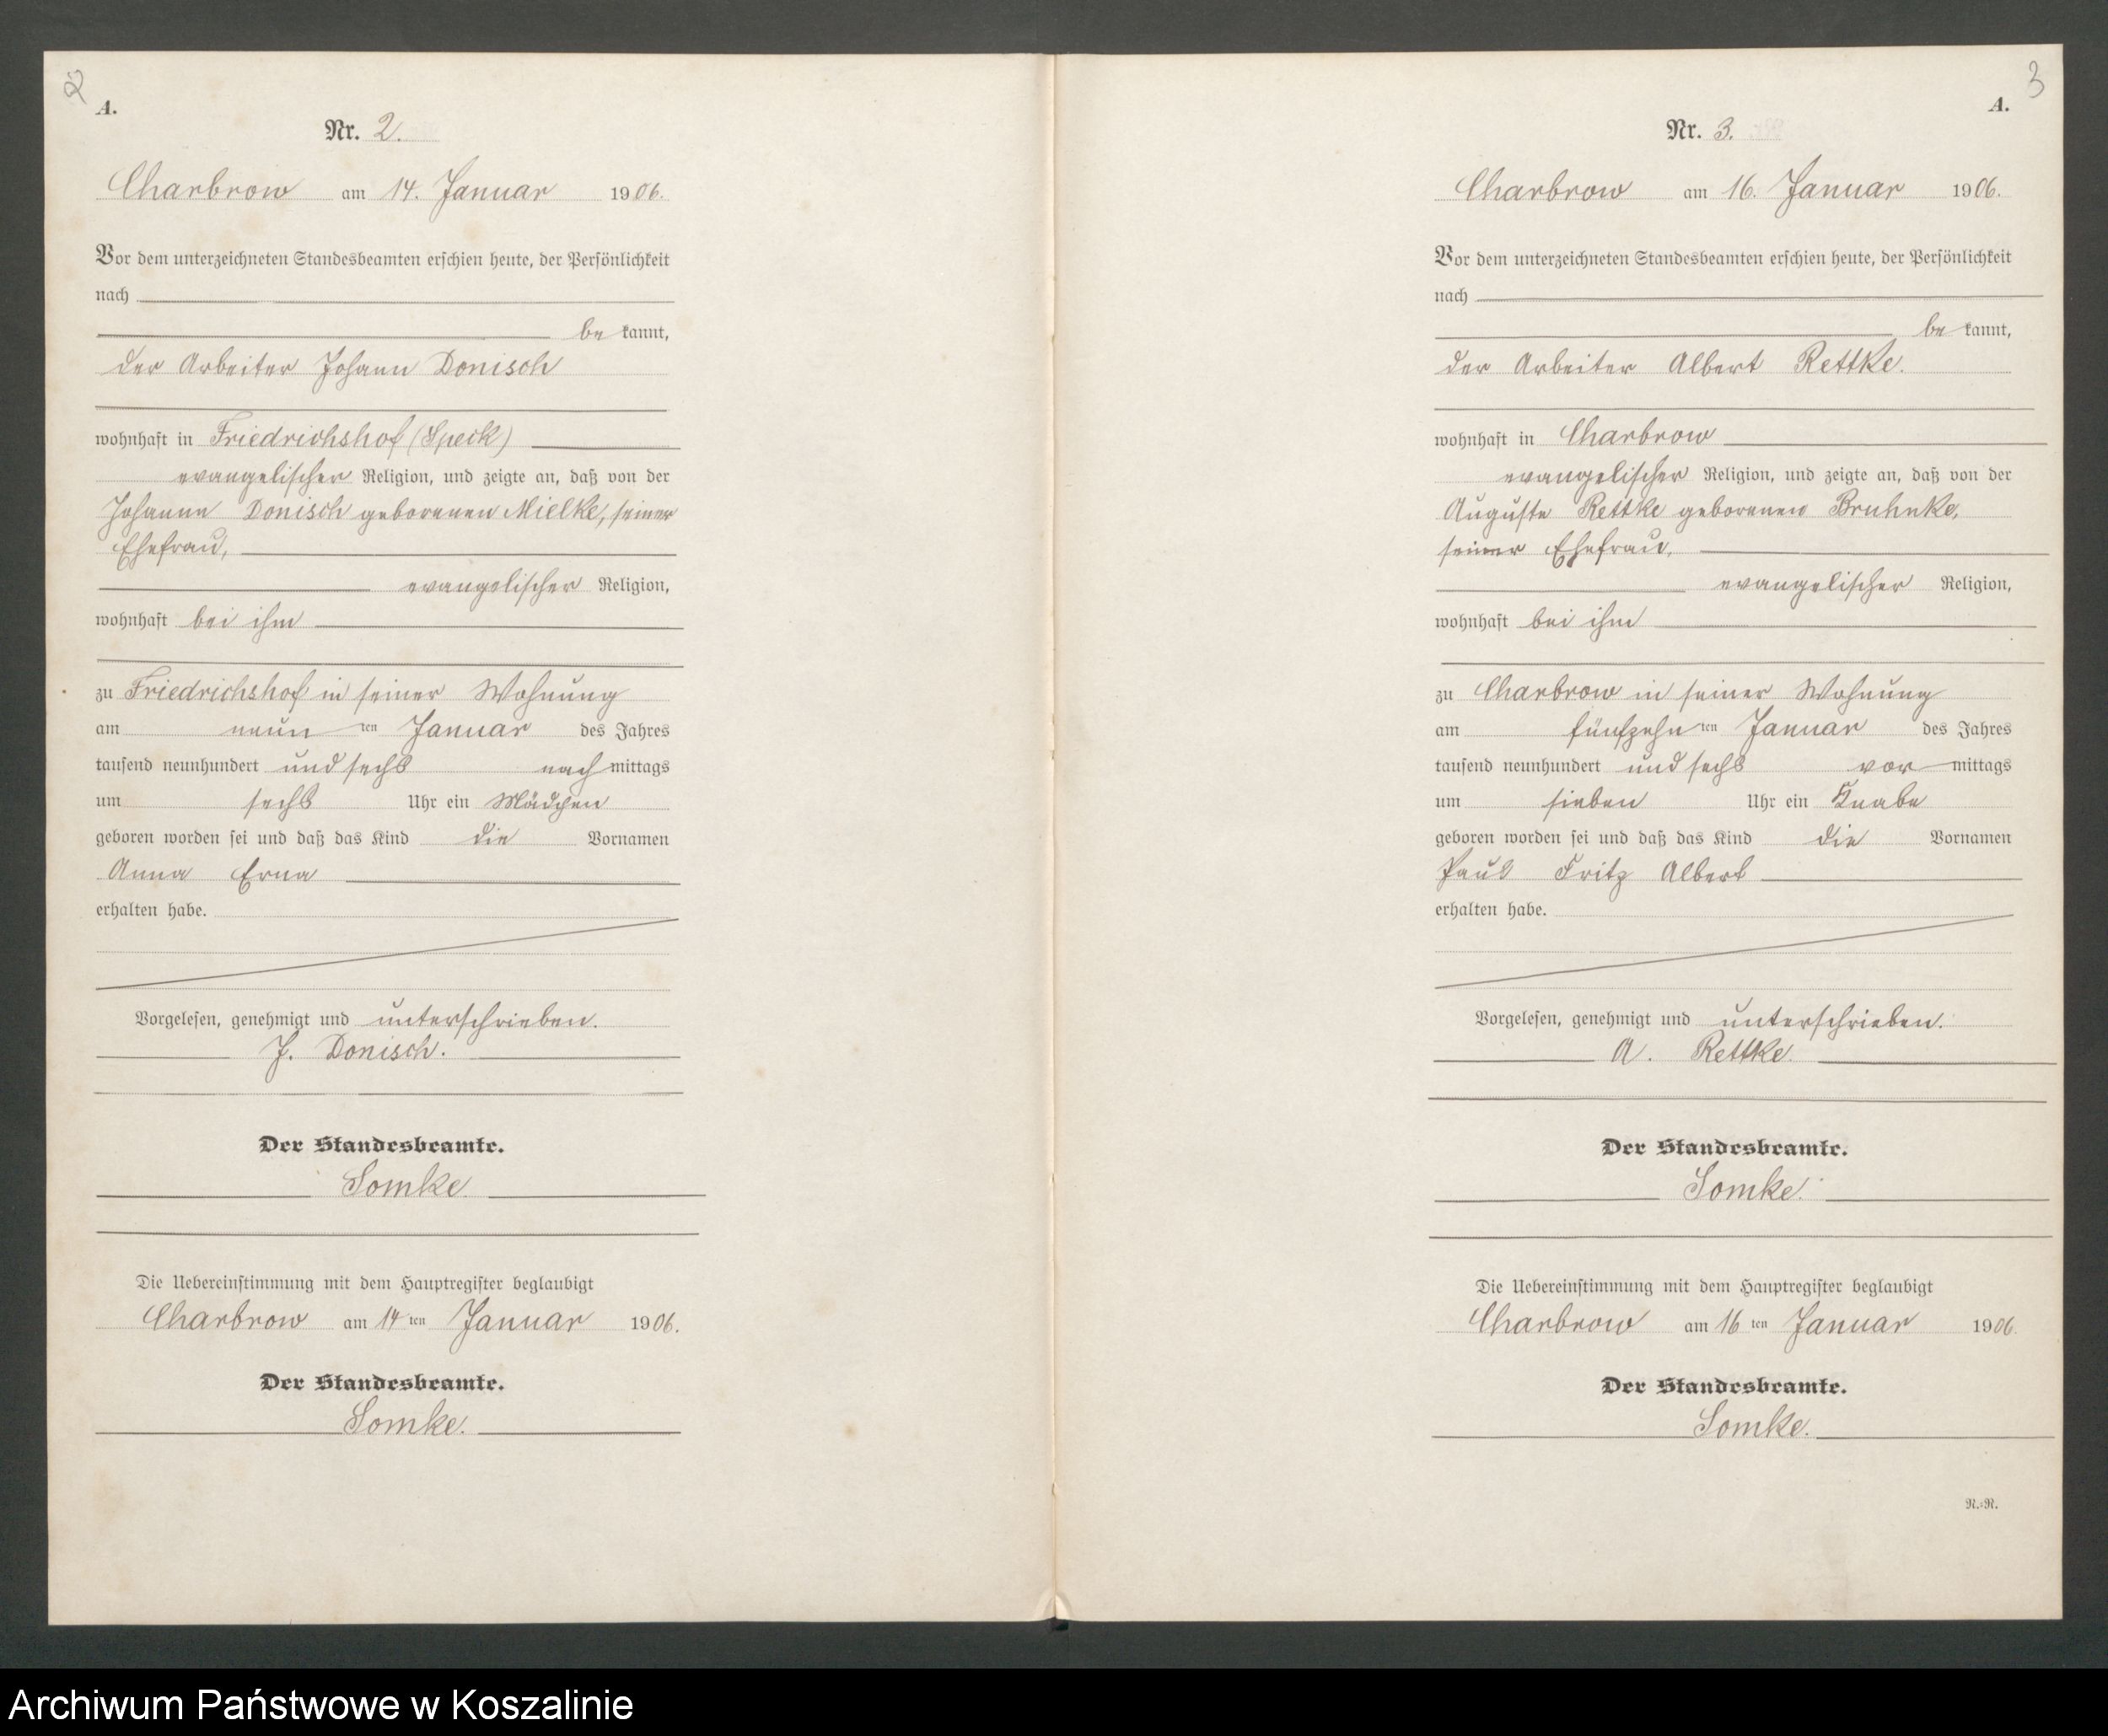 2
A.
Nr. 2.
Charbrow am 14. Januar 1906.
Vor dem unterzeichneten Standesbeamten erschien heute, der Persönlichkeit
nach
be kannt,
der Arbeiter Johann Donisch
wohnhaft in Friedrichshof (Speck)
evangelischer Religion, und zeigte an, daß von der
Johanne Donisch geborenen Mielke, seiner
Ehefrau,
evangelischer Religion,
wohnhaft bei ihm
zu Friedrichshof in seiner Wohnung
am neun ten Januar des Jahres
tausend neunhundert und sechs nach mittags
um sechs Uhr ein Mädchen
geboren worden sei und daß das Kind die Vornamen
Anna Erna
erhalten habe.
Vorgelesen, genehmigt und unterschrieben.
J. Donisch.
Der Standesbeamte.
Somke.
Die Uebereinstimmung mit dem Hauptregister beglaubigt
Charbrow am 14 ten Januar 1906.
Der Standesbeamte.
Somke.
3
A.
Nr. 3.
Charbrow am 16. Januar 1906.
Vor dem unterzeichneten Standesbeamten erschien heute, der Persönlichkeit
nach
be kannt,
der Arbeiter Albert Rettke.
wohnhaft in Charbrow
evangelischer Religion, und zeigte an, daß von der
Auguste Rettke geborenen Bruhnke,
seiner Ehefrau,
evangelischer Religion,
wohnhaft bei ihm
zu Charbrow in seiner Wohnung
am fünfzehn ten Januar des Jahres
tausend neunhundert und sechs vor mittags
um sieben Uhr ein Knabe
geboren worden sei und daß das Kind die Vornamen
Paul Fritz Albert
erhalten habe.
Vorgelesen, genehmigt und unterschrieben.
A. Rettke.
Der Standesbeamte.
Somke.
Die Uebereinstimmung mit dem Hauptregister beglaubigt
Charbrow am 16 ten Januar 1906.
Der Standesbeamte.
Somke.
N.=N.
Archiwum Państwowe w Koszalinie